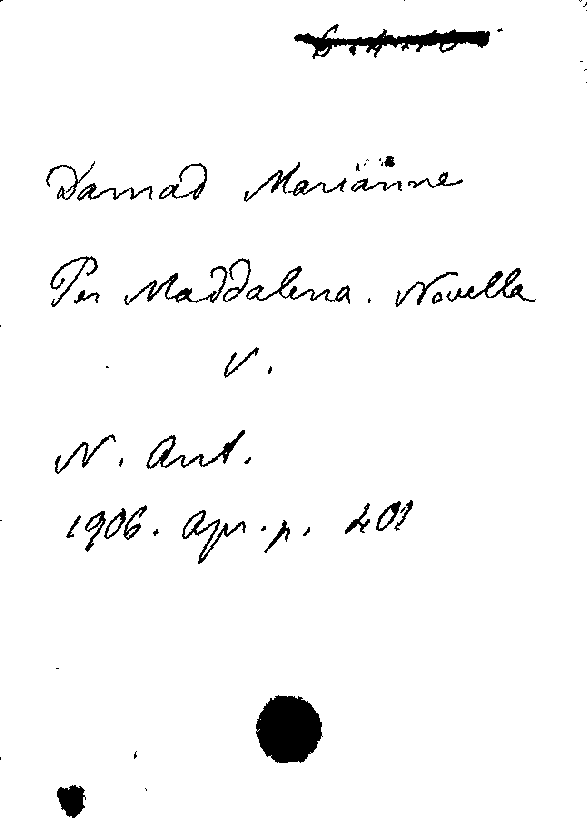 Damad Marianne
Per Maddalena. Novella
V.
N. Ant.
1906. Apr. p. 401